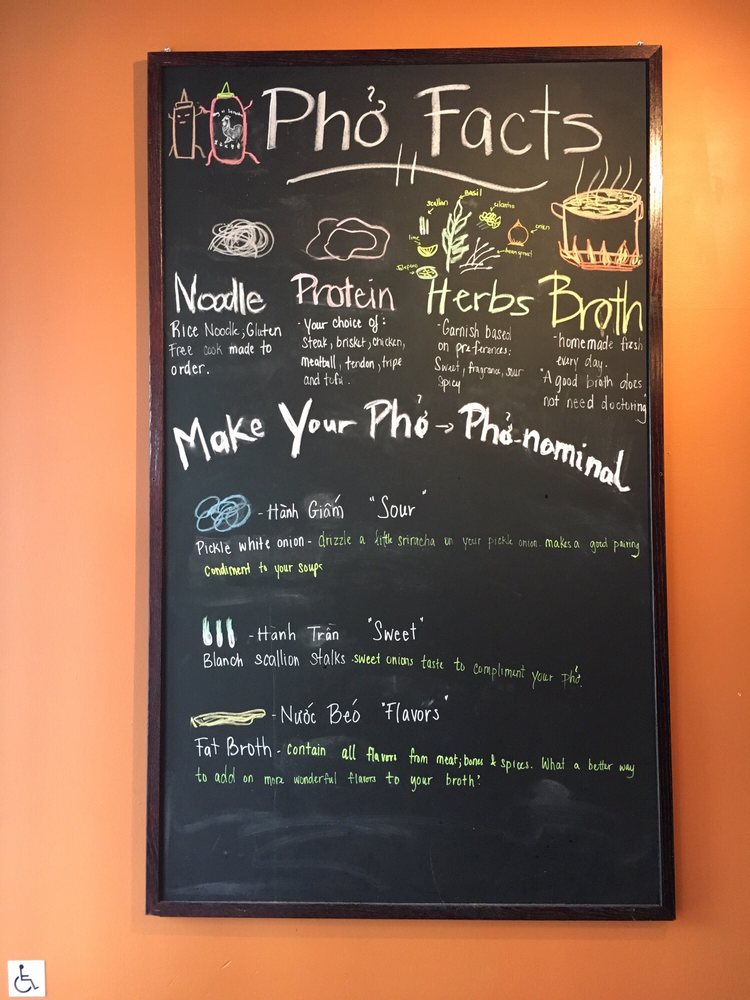 Phở Facts
basil
scallion
cilantro
lime
onion
bean sprout
Jalapeno
Noodle
Rice Noodle; Gluten
Free cook made to
order.
Protein
- Your choice of:
Steak, brisket, chicken,
meatball, tendon, tripe
and tofu.
Herbs
- Garnish based
on preferences:
Sweet, fragrance, sour
spicy
Broth
- homemade fresh
every day.
"A good broth does
not need doctoring"
Make Your Phở → Phở-nominal
- Hành Giấm "Sour"
Pickle white onion - drizzle a little sriracha on your pickle onion. makes a good pairing
condiment to your soups
- Hành Trần "Sweet"
Blanch scallion stalks - sweet onions taste to compliment your phở.
- Nước Béo "Flavors"
Fat Broth - contain all flavors from meat, bones & spices. What a better way
to add on more wonderful flavors to your broth!